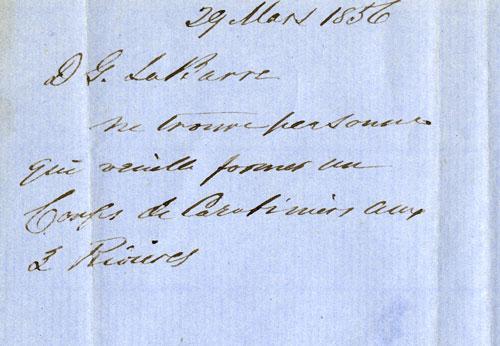 29 Mars 1856
D G. LaBarre
ne trouve personne
qui veuille former un
Corps de Carabiniers aux
3 Rivières